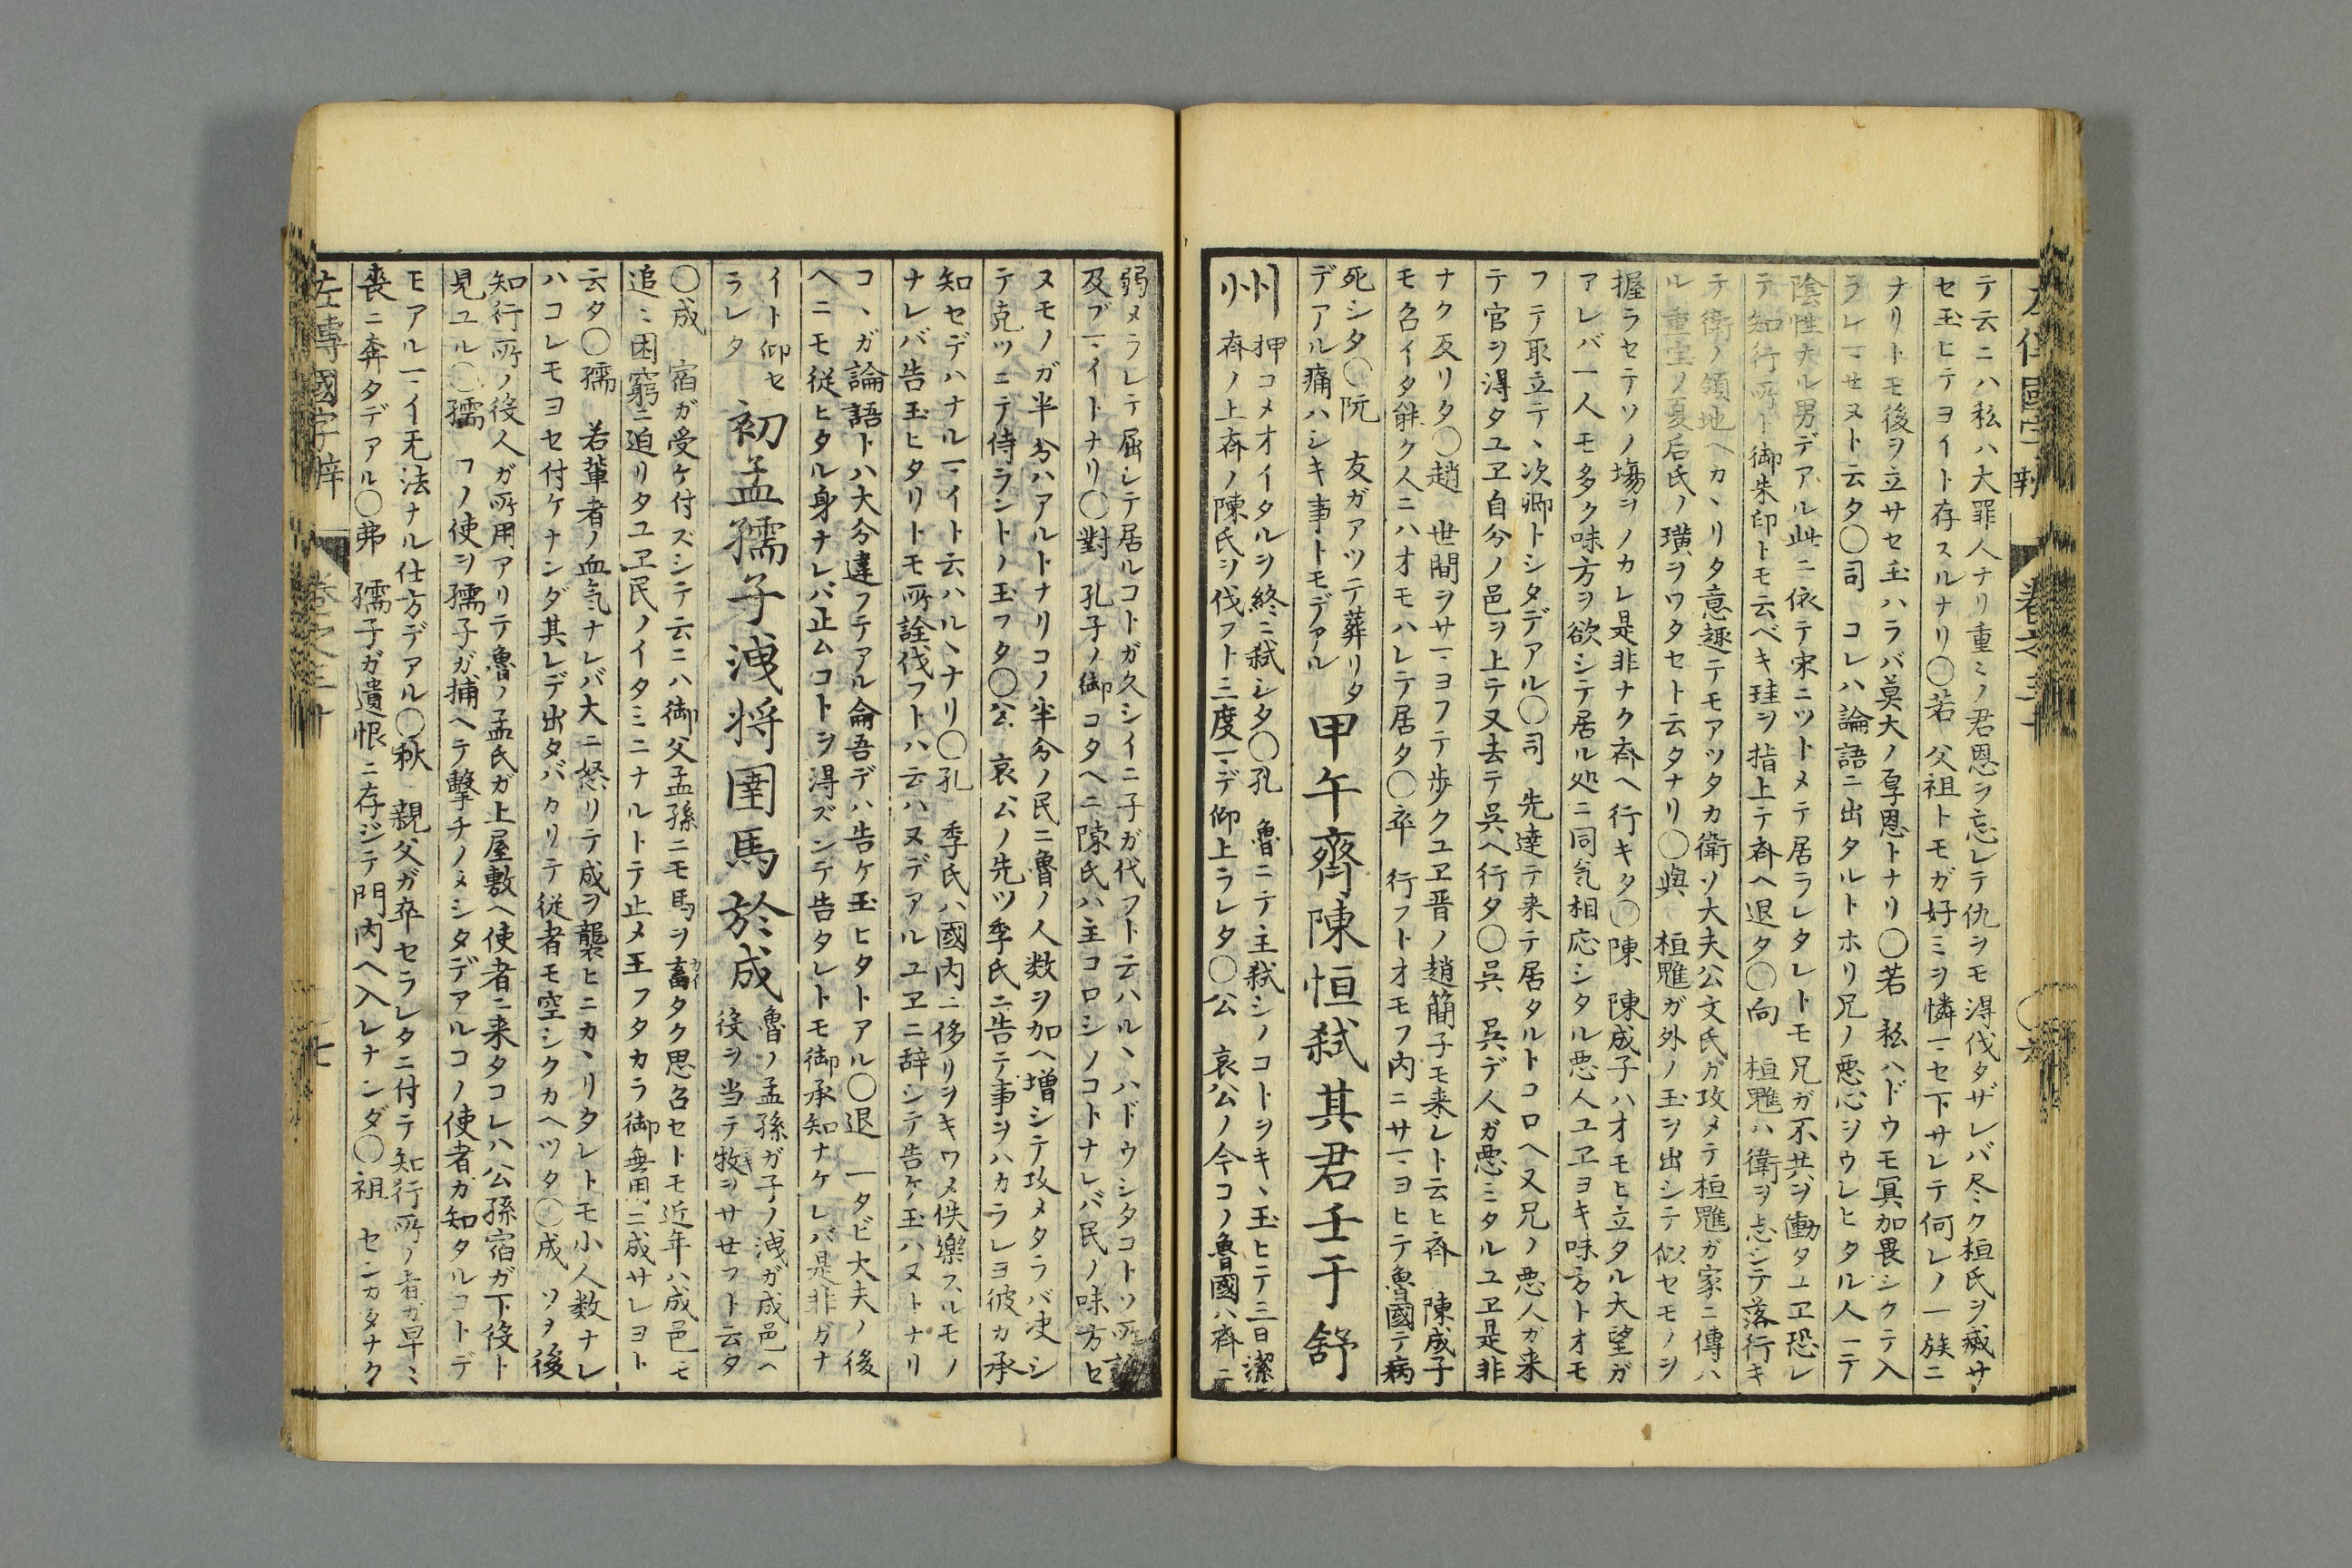 テ云ニハ私ハ大罪人ナリ重ミノ君恩ヲ忘レテ仇ヲモ得伐タザレバ尽ミク桓氏ヲ滅サ
セ玉ヒテヨイト存スルナリ〇若 父祖トモガ好ミヲ憐ーセ下サレテ何レノ一族ニ
ナリトモ後ヲ立サセ玉ハラバ莫大ノ厚恩トナリ〇若 私ハドウモ冥加畏シクテ入
ラレーセヌト云タ〇司 コレハ論語ニ出タルトホリ兄ノ悪心ヲウレヒタル人ーテ
陰性ナル男デアル此ニ依テ宋ニツトメテ居ラレタレトモ兄ガ不共ヲ働タユヱ恐レ
テ知行所ト御朱印トモ云ベキ珪ヲ指上テ斉ヘ退タ〇向 桓魋ハ衛ヲ志シテ落行キ
テ衛ノ領地ヘカヽリタ意趣テモアツタカ衛ソ大夫公文氏ガ攻メテ桓魋ガ家ニ傳ハ
ル重宝ノ夏后氏ノ璜ヲワタセト云タナリ〇與 桓魋ガ外ノ玉ヲ出シテ似セモノヲ
握ラセテソノ場ヲノカレ是非ナク斉ヘ行キタ〇陳 陳成子ハオモヒ立タル大望ガ
アレバ一人モ多ク味方ヲ欲シテ居ル処ニ同気相応シタル悪人ユヱヨキ味方トオモ
フテ取立テヽ次卿トシタデアル〇司 先達テ来テ居タルトコロヘ又兄ノ悪人ガ来
テ官ヲ得タユヱ自分ノ邑ヲ上テ又去テ呉ヘ行タ〇呉 呉デ人ガ悪ミタルユヱ是非
ナク反リタ〇趙 世間ヲサーヨフテ歩クユヱ晋ノ趙簡子モ来レト云ヒ斉 陳成子
モ召イタ能ク人ニハオモハレテ居タ〇卒 行フトオモフ内ニサーヨヒテ魯國テ病
死シタ〇阮 友ガアツテ葬リタ
デアル痛ハシキ事トモデアル
甲午齊陳恒弑其君壬于舒
州
押コメオイタルヲ終ニ弑シタ〇孔 魯ニテ主弑シノコトヲキヽ玉ヒテ三日潔
斉ノ上斉ノ陳氏ヲ伐フト三度ーデ仰上ラレタ〇公 哀公ノ今コノ魯國ハ齊ニ
弱メラレテ屈シテ居ルコトガ久シイニ子ガ代フト云ハルヽハドウシタコトソ所
及ブーイトナリ〇對 孔子ノ御コタヘニ陳氏ハ主コロシノコトナレバ民ノ味方セ
ヌモノガ半分ハアルトナリコノ半分ノ民ニ魯ノ人数ヲ加ヘ増シテ攻メタラバ決シ
テ克ツニテ侍ラントノ玉フタ〇公 哀公ノ先ツ季氏ニ告テ事ヲハカラレヨ彼カ承
知セデハナルーイト云ハルヽナリ〇孔 季氏ハ國内ニ侈リヲキワメ佚樂スルモノ
ナレバ告玉ヒタリトモ所詮伐フトハ云ハヌデアルユヱニ辞シテ告ケ玉ハヌトナリ
コヽガ論語トハ大分違フテアル侖吾デハ告ケ玉ヒタトアル〇退 一タビ大夫ノ後
ヘニモ従ヒタル身ナレバ止ムコトヲ得ズンテ告タレトモ御承知ナケレバ是非ガナ
イト仰セ
ラレタ
初孟孺子洩将圉馬於成
魯ノ孟孫ガ子ノ洩ガ成邑ヘ
役ヲ当テ牧ヲサセフト云タ
〇成 宿ガ受ケ付ズシテ云ニハ御父孟孫ニモ馬ヲ畜タク思召セトモ近年ハ成邑モ
追ミ困窮ニ迫リタユヱ民ノイタミニナルトテ止メ玉フタカラ御無用ニ成サレヨト
云タ〇孺 若輩者ノ血気ナレバ大ニ怒リテ成ヲ襲ヒニカヽリタレトモ小人数ナレ
ハコレモヨセ付ケナンダ其レデ出タバカリテ従者モ空シクカヘツタ〇成 ソヲ後
知行所ノ役人ガ所用アリテ魯ノ孟氏ガ上屋敷ヘ使者ニ来タコレハ公孫宿ガ下役ト
見ユル〇孺 コノ使ヲ孺子ガ捕ヘテ撃チノメシタデアルコノ使者カ知タルコトデ
モアルーイ无法ナル仕方デアル〇秋 親父ガ卒セラレタニ付テ知行所ノ者ガ早ミ
喪ニ奔タデアル〇弗 孺子ガ遺恨ニ存ジテ門内ヘ入レナンダ〇祖 センカタナク
左傳國字辯 巻之三十 七